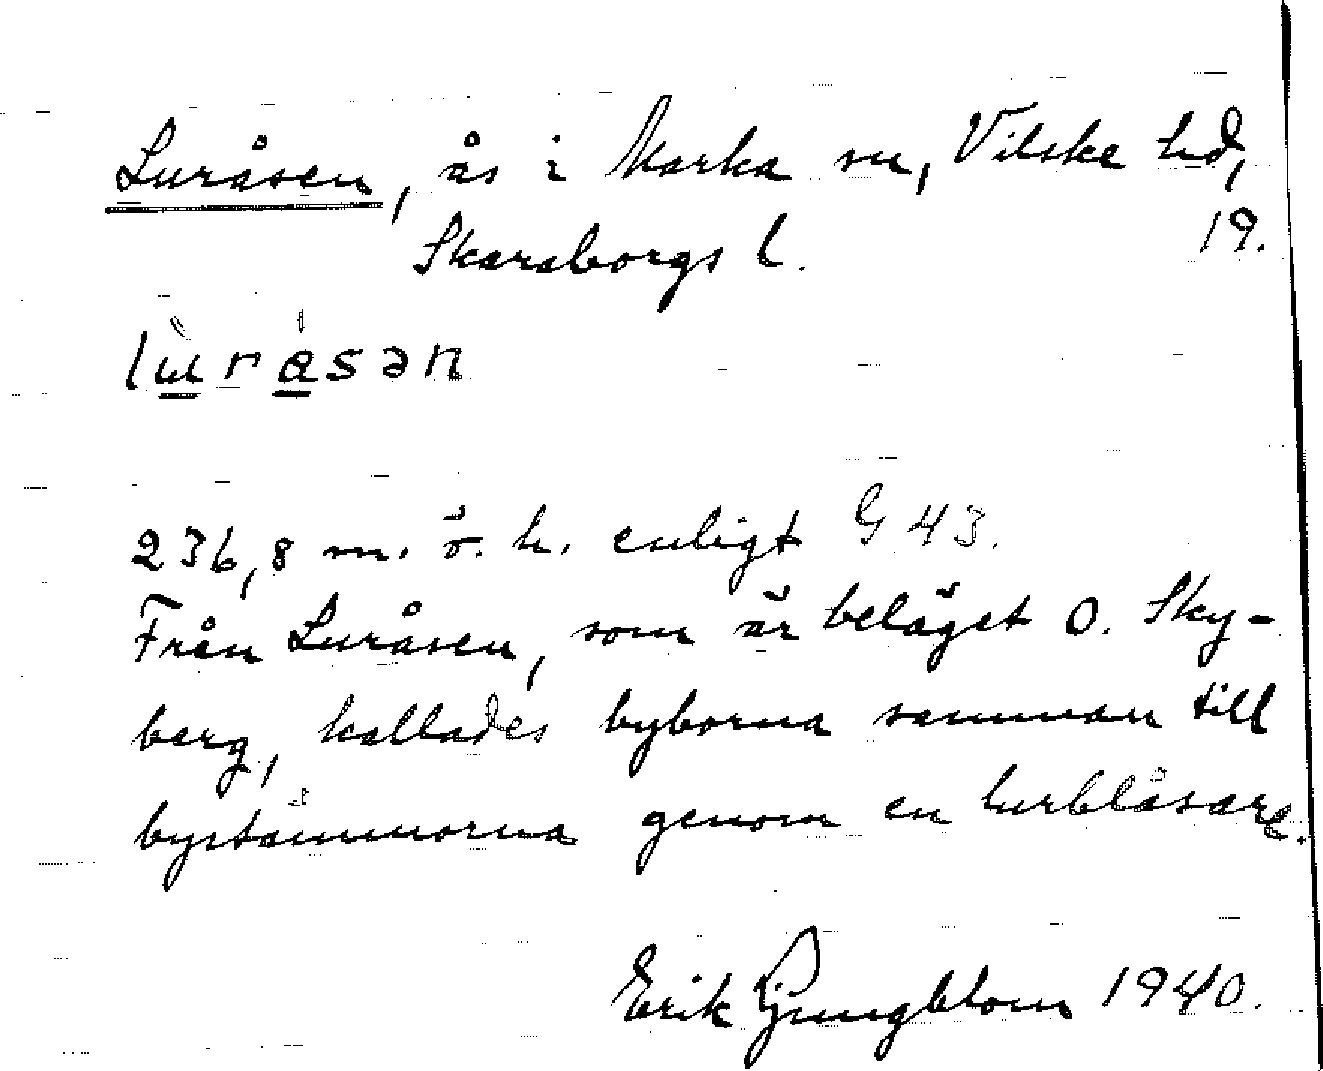 Luråsen, ås i Marka sn, Vilske hd,
Skaraborgs l. 19.
lùråsən
236,8 m. ö. h. enligt G 43.
Från Luråsen, som är beläget O. Sky-
berg, kallades byborna samman till
bystämmorna genom en lurblåsare.
Erik Ljungblom 1940.